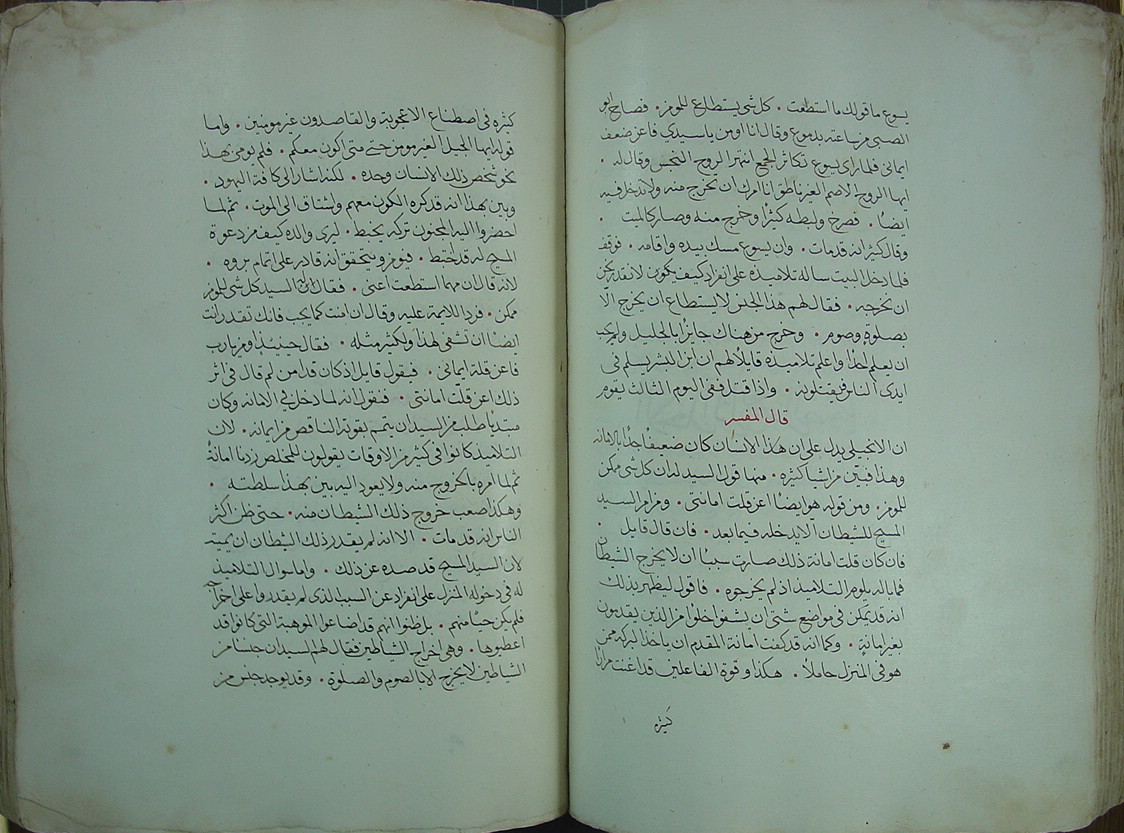 يسوع ما قولك ما استطعت . كل شي يستطاع للمومن . فصاح ابو
الصبي من ساعته بدموع وقال انا اومن يا سيدي فاعن ضعف
ايماني فلما راى يسوع تكاثر الجمع انتهر الروح النجس وقال له .
ايها الروح الاصم الغير ناطق انا امرك ان تخرج منه ولا تدخل فيه
ايضًا . فصرخ ولبطه كثيرًا وخرج منه وصار كالميت .
وقال كثير انه قد مات . وان يسوع مسك بيده واقامه . فوقف
فلما دخل البيت ساله تلاميذه على انفراد كيف يكون لا نقدر نحن
ان نخرجه . فقال لهم هذا الجنس لا يستطاع ان يخرج الا
بصلوة وصوم . وخرج من هناك جايزًا بالجليل ولم يحب
ان يعلم احدًا واعلم تلاميذه قايلًا لهم ان ابن البشر يسلم في
ايدى الناس فيقتلونه . واذا قتل ففي اليوم الثالث يقوم
قال المفسر
ان الانجيلي يدل على ان هذا الانسان كان ضعيفًا جدًا بالامانه
وهذا فبين من اشيا كثيره . منها قول السيد له ان كل شي ممكن
للمومن . ومن قوله هو ايضًا اعن قلت امانتي . ومن امر السيد
المسيح للشيطان الا يدخله فيما بعد . فان قال قايل .
فان كان قلت امانة ذلك صارت سببًا ان لا يخرج الشيطان
فما باله يلوم التلاميذ اذ لم يخرجوه . فاقول ليظهر بذلك
انه قد يمكن في مواضع شتى ان يشفوا خلوًا من الذين يقدمون
بغير امانة . وكما انه قد كفت امانة المقدم ان ياخذ البركه ممن
هو في المنزل حاملًا . هكذا وقوة الفاعلين قد اغنت مرارًا
كثيره
كثيره في اصطناع الاعجوبة والقاصدون غير مومنين . واما
قوله ايها الجيل الغير مومن حتى متى اكون معكم . فلم يومي بهذا
نحو شخص ذلك الانسان وحده . لكنه اشار الى كافة اليهود .
وبين بهذا انه قد كره الكون معهم واشتاف الى الموت . ثم لما
احضروا اليه المجنون تركه يخبط . ليرى والده كيف من دعوة
المسيح له قد اختبط . فيومن ويتحقق انه قادر على اتمام بروه .
لانه قال ان مهما استطعت اعني . فقال له السيد كل شي للمومن
ممكن . فرد اللايمة عليه وقال ان امنت كما يجب فانك تقدر انت
ايضًا ان تشفى لهذا ولكثير مثله . فقال حينيذ اومن يا رب
فاعن قلة ايماني . فيقول قايل اذ كان قد امن لم قال في اثر
ذلك اعن قلت امانتى . فنقول انه لما دخل في الامانه وكان
مبتديًا طلب من السيد ان يتمم بقوته الناقص من ايمانه . لان
التلاميذ كانوا في كثير من الاوقات يقولون للمخلص زدنا امانة
ثم لما امره بالخروج منه ولا يعود اليه بين بهذا سلطنته .
وهكذا صعب خروج ذلك الشيطان منه . حتى ظن اكثر
الناس انه قد مات . الا انه لم يقدر ذلك الشيطان ان يميته
لان السيد المسيح قد صده عن ذلك . واما سوال التلاميذ
له في دخوله المنزل على انفراد عن السبب الذى لم يقدروا على اخراجه
فلم يكن حيًا منهم . بل ظنوا انهم قد اضاعوا الموهبة التى كانوا قد
اعطيوها . وهي اخراج الشياطين فقال لهم السيد ان جنسًا من
الشياطين لا يخرج الا بالصوم والصلوة . وقد يوجد جنس من